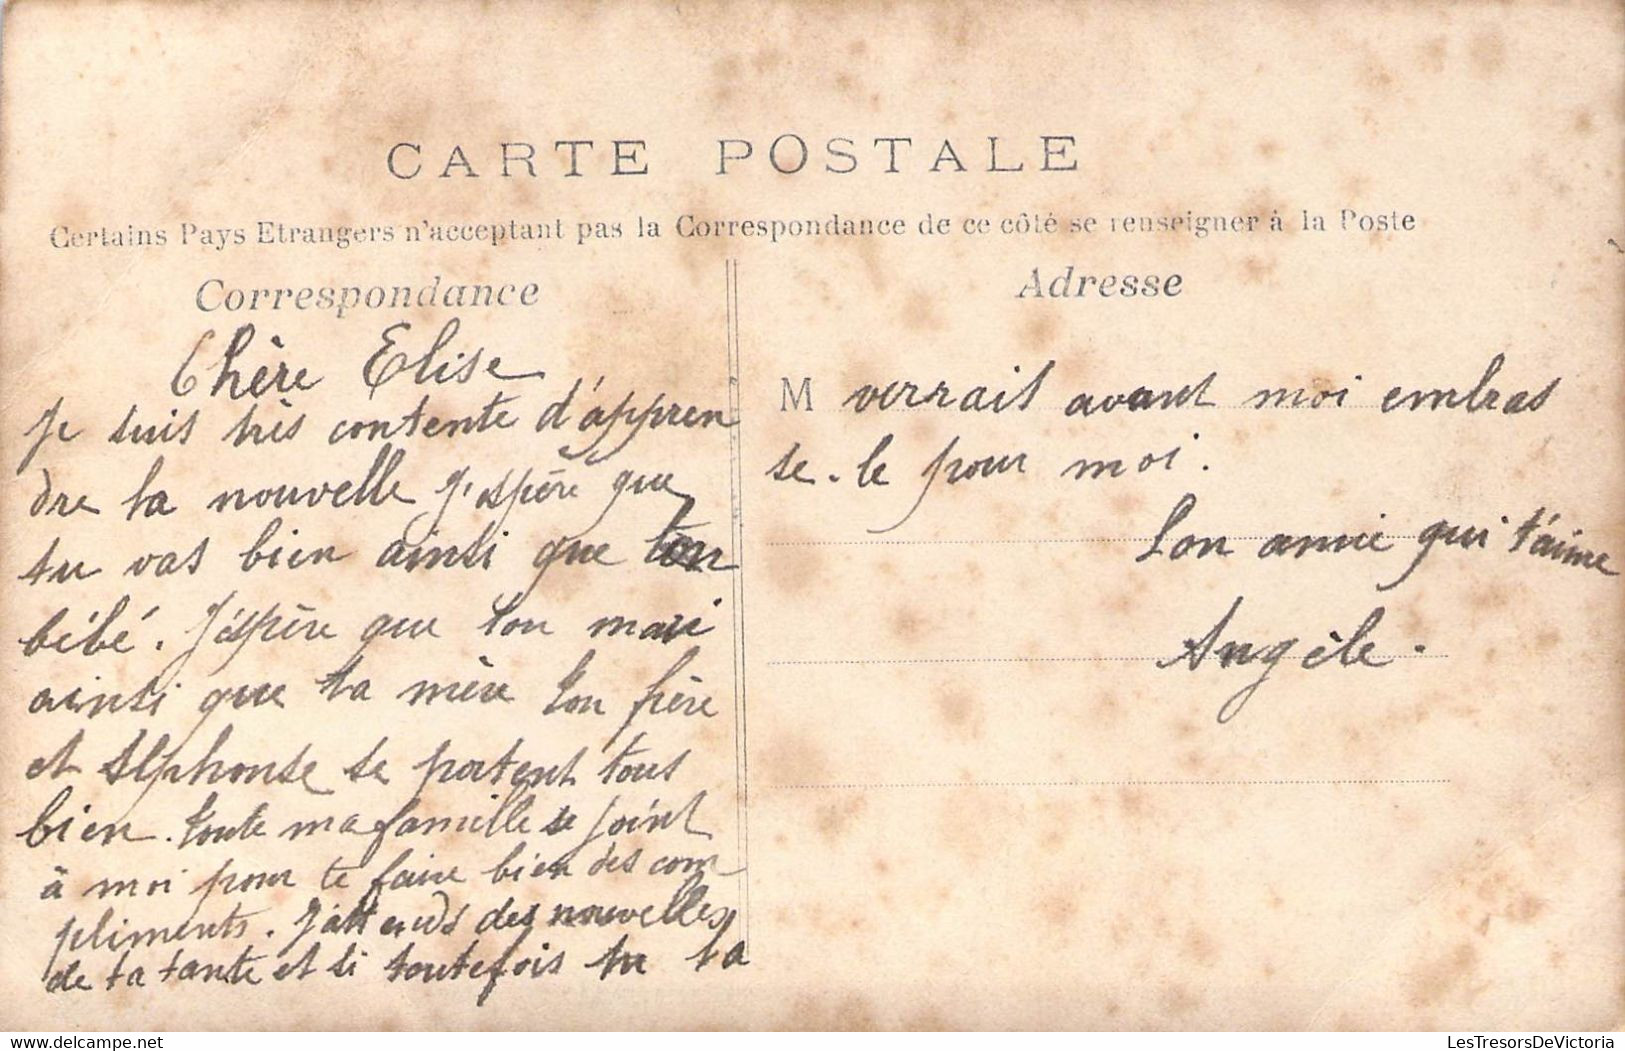 CARTE POSTALE
Certains Pays Etrangers n'acceptant pas la Correspondance de ce côté se renseigner à la Poste
Correspondance
Chère Elise
Je suis très contente d'appren
dre la nouvelle J'espère que
tu vas bien ainsi que ton
bébé. J'éspère que ton mari
ainsi que ta mère ton frère
et Alphonse se portent tous
bien. toute ma famille se joint
à moi pour te faire bien des com
pliments. J'attends des nouvelles
de ta tante et si toutefois tu la
Adresse
M verrais avant moi embras
se-le pour moi.
Ton amie qui t'aime
Angèle.
LesTresorsDeVictoria